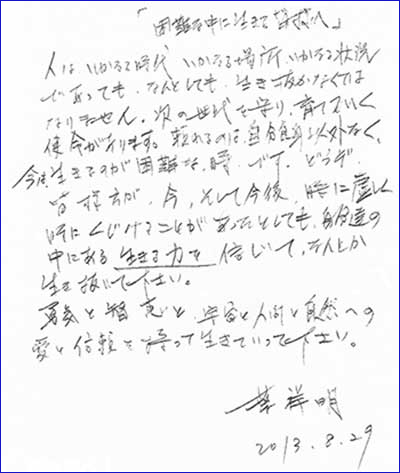 「困難な中に生きる皆様へ」
人は、いかなる時代、いかなる場所、いかなる状況
であっても、なんとしても、生き抜かなくては
なりません。次の世代を守り、育てていく
使命があります。頼れるのは、自分自身以外なく、
今は、生きるのが困難な時です。どうぞ、
皆様方が、今、そして今後、時に虚しく
時にくじけることがあったとしても、自分達の
中にある生きる力を信じて、なんとか
生き抜いて下さい。
勇気と智恵と、宇宙と人間と自然への
愛と信頼を持って生きていって下さい。
葉祥明
2013.8.29